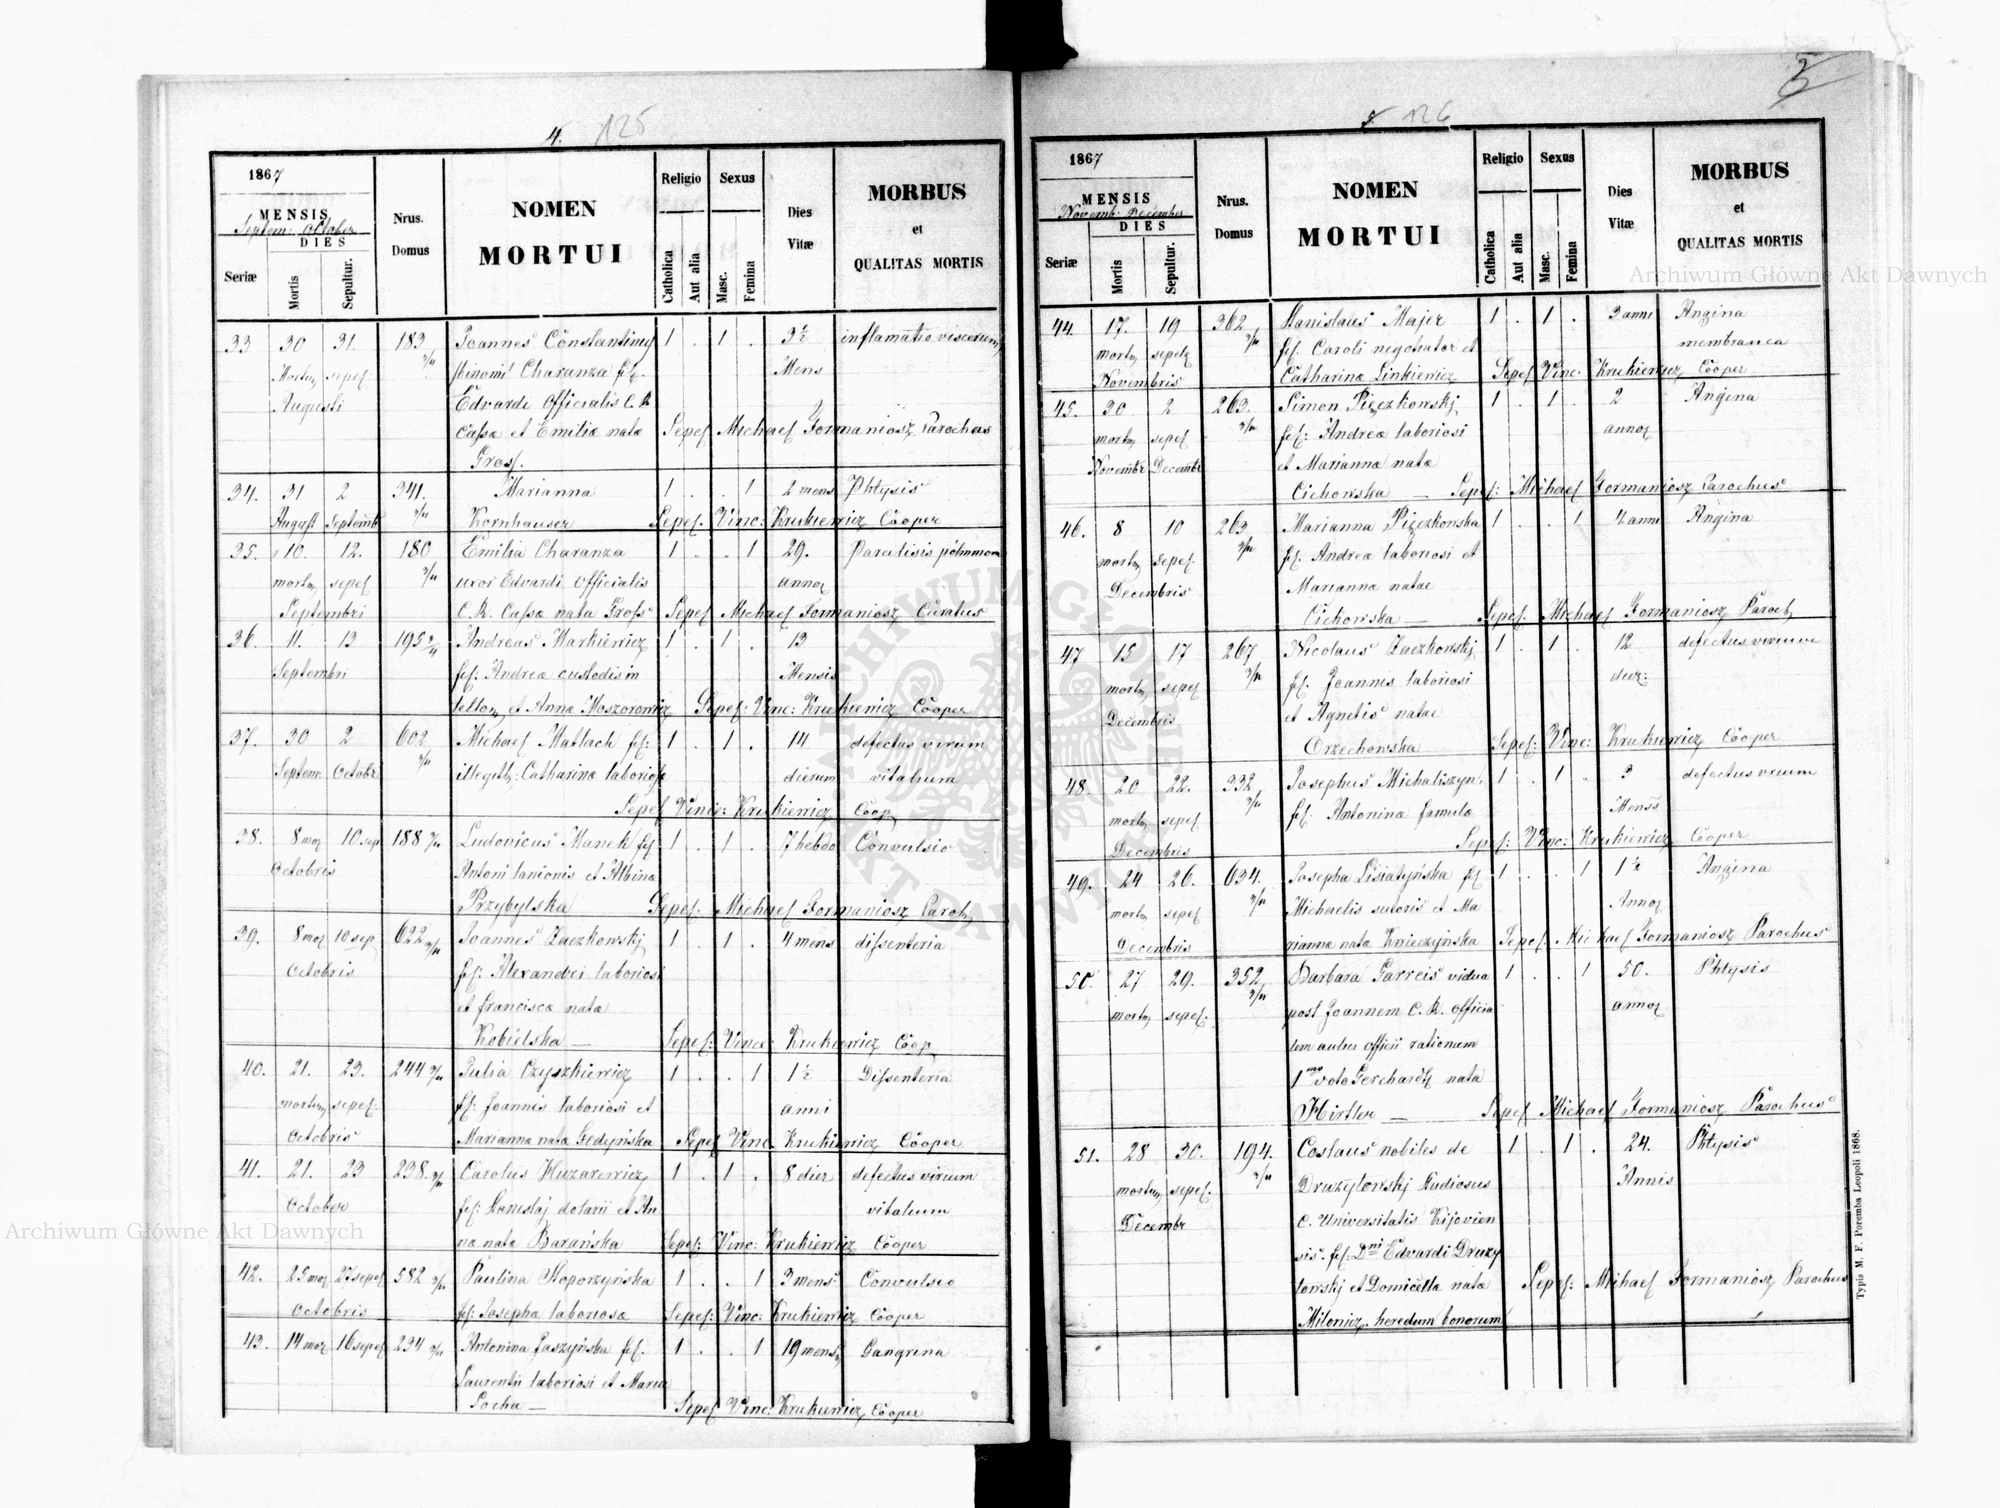 4. 125
1867
MENSIS
Septem: October
DIES
Seriæ
Mortis
Sepultur.
Nrus.
Domus
NOMEN
MORTUI
Religio
Catholica
Aut alia
Sexus
Masc.
Femina
Dies
Vitæ
MORBUS
et
QUALITAS MORTIS
33 30 31. 183 Joannes Constantinus 1 . 1 . 3½ inflamatio viscerum
sepel. binomis Charanza fil. Mens
Augusti Edvardi officialis C. R.
Cassa et Emilia nata Sepel Michael Formaniosz Parochus
Gross.
34. 31 2 341. Marianna 1 . . 1 2 mens Phtysis
August Septemb Kornhauser Sepel. Vinc: Krukiewicz Cooper
35. 10. 12. 180 Emilia Charanza 1 . . 1 29. Paralisis pulmon
sepel uxor Edvardi officialis
Septembri C. R. Cassa nata Gross Sepel Michael Formaniosz Curatus
36. 11. 13 195 Andreas Markiewicz 1 . 1 . 13
Septembri fil. Andrea custodis in Mensis
et Anna Moszorowicz Sepel: Vinc: Krukiewicz Cooper
37. 30 2 602 Michael Matlach fil: 1 . 1 . 14 defectus virium
Septem: Octobr illegit: Catharina laboriosa dierum vitalium
Sepel Vinc: Krukiewicz Coop
38. 8 10 sep 188 Ludovicus Manek fil 1 . 1 . 7 hebdo Convulsio
Octobris Antoni lanionis et Albina
Przybylska Sepel. Michael Formaniosz Paroch
39. 8 10 sep 622 Joannes Zaczkowskj 1 . 1 . 4 mens dissenteria
Octobris fil: Alexandri laboriosi
et francisca nata
Kobielska — Sepel: Vince: Krukiewicz Coop
40. 21. 23. 244 Julia Czyszkiewicz 1 . . 1 1½ Dissenteria
sepel: fil: Joannis laboriosi et anni
Octobris Marianna nata Gedyńska Sepel Vinc. Krukiewicz Cooper
41. 21. 23 238. Carolus Huzarewicz 1 . 1 . 8 dier defectus virium
October fil: Stanislaj dolarii et An vitalium
na nata Barańska Sepel: Vinc: Krukiewicz Cooper
42. 25 27 sepel 582 Paulina Koporzyńska 1 . . 1 3 mens Convulsio
Octobris fil: Josepha laboriosa Sepel: Vinc: Krukiewicz Cooper
43. 14 16 sepel 234 Antonina Jaszyńska fil. 1 . . 1 19 mens Gangrena
Laurentii laboriosi et Maria
Socha — Sepel Vinc: Krukiewicz Cooper
5. 126
1867
MENSIS
Novemb: December
DIES
Seriæ
Mortis
Sepultur.
Nrus.
Domus
NOMEN
MORTUI
Religio
Catholica
Aut alia
Sexus
Masc.
Femina
Dies
Vitæ
MORBUS
et
QUALITAS MORTIS
44. 17. 19 362 Stanislaus Majer 1 . 1 . 3 anni Angina
fil. Caroli negotiator et membranea
Novembris Catharina Linkiewicz Sepel Vinc: Krukiewicz Cooper
45. 30 2 263. Simon Pięczkowskj 1 . 1 . 2 Angina
sepel fil: Andrea laboriosi
Novembr Decembr et Marianna nata
Cichowska — Sepel: Michael Formaniosz Parochus
46. 8 10 263 Marianna Pięczkowska 1 . . 1 4 anni Angina
sepel. fil. Andrea laboriosi et
Decembris Marianna natae
Cichowska — Sepel: Michael Formaniosz Paroch
47 15 17 267 Nicolaus Zaczkowskj 1 . 1 . 12 defectus virium
sepel fil. Joannis laboriosi dier:
Decembris et Agnetis natae
Orzechowska Sepel: Vinc: Krukiewicz Cooper
48. 20 22. 332 Josephus Michaliszyn. 1 . 1 . 3 defectus virium
sepel fil. Antonina famula Menss
Decembris Sepel: Vinc: Krukiewicz Cooper
49. 24 26. 634. Josepha Lisiatyńska fil 1 . . 1 1½ Angina
sepel Michaelis sutoris et Ma
Decembris rianna nata Knieczyńska Sepel. Michael Formaniosz Parochus
50. 27 29. 352 Barbara Garreis vidua 1 . . 1 50. Phtysis
sepel. post Joannem C. R. officia
lem aulus officii rationum
1mo voto Gerchardt nata
Hirtler — Sepel Michael Formaniosz Parochus
51. 28 30. 194. Coslaus nobiles de 1 . 1 . 24. Phtysis
sepel. Druzylowskj studiosus Annis
Decembr C. Universitatis Kijovien
sis. fil: Dni Edvardi Druzy
lowskj et Domicella nata Sepel: Mihael Formaniosz Parochus
Milowicz. heredum bonorum
Typis M. F. Poremba Leopoli 1868.
Archiwum Główne Akt Dawnych
Archiwum Główne Akt Dawnych
ARCHIWUM GŁÓWNE AKT DAWNYCH